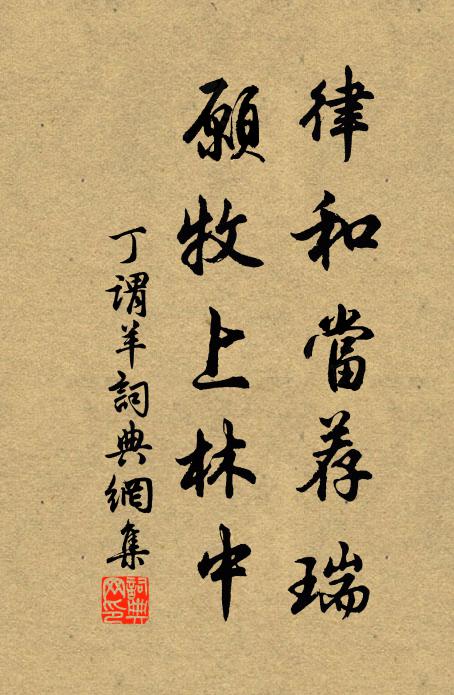 律和當荐瑞
願牧上林中
丁謂羊詞典網集
詞典网印